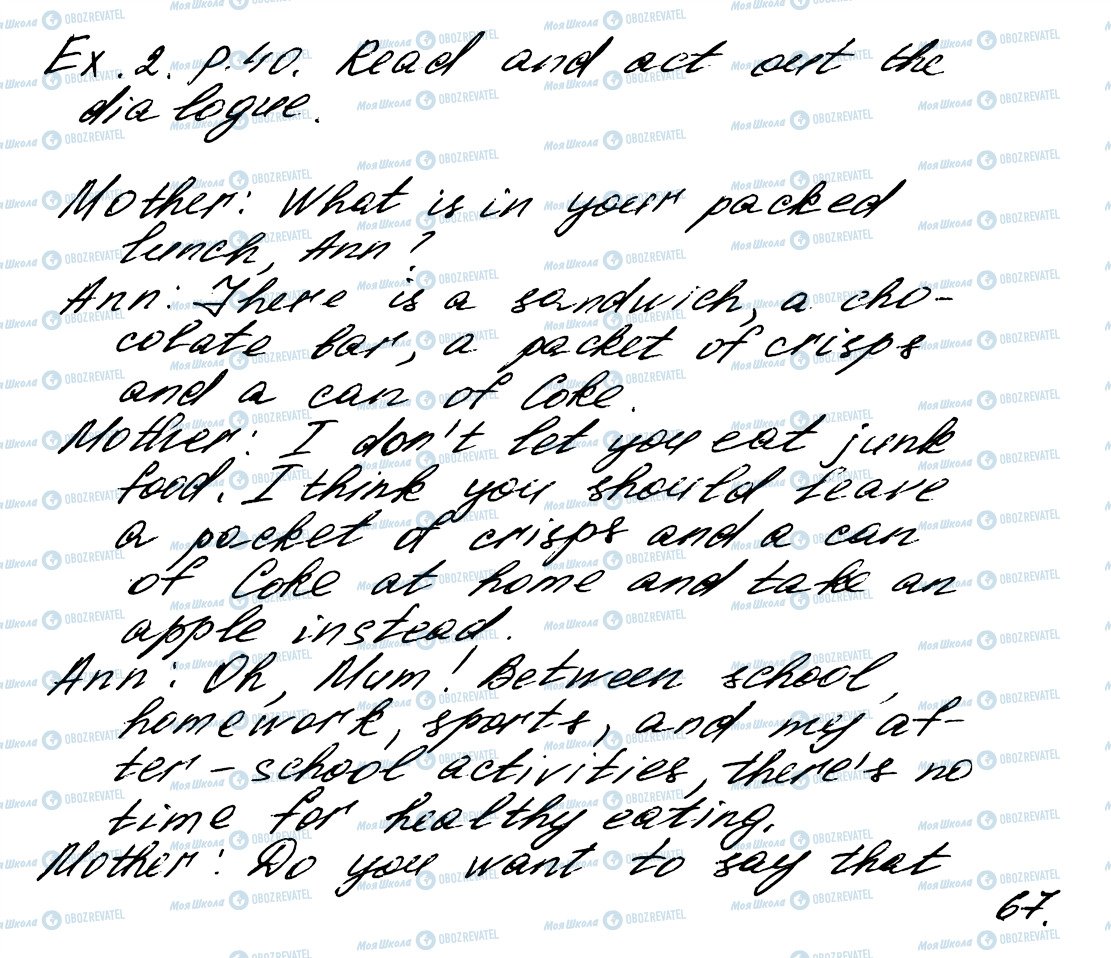 Ex. 2. p. 40. Read and act out the
dialogue.
Mother: What is in your packed
lunch, Ann?
Ann: There is a sandwich, a cho-
colate bar, a packet of crisps
and a can of Coke.
Mother: I don't let you eat junk
food. I think you should leave
a packet of crisps and a can
of Coke at home and take an
apple instead.
Ann: Oh, Mum! Between school,
homework, sports, and my af-
ter-school activities, there's no
time for healthy eating.
Mother: Do you want to say that
67.